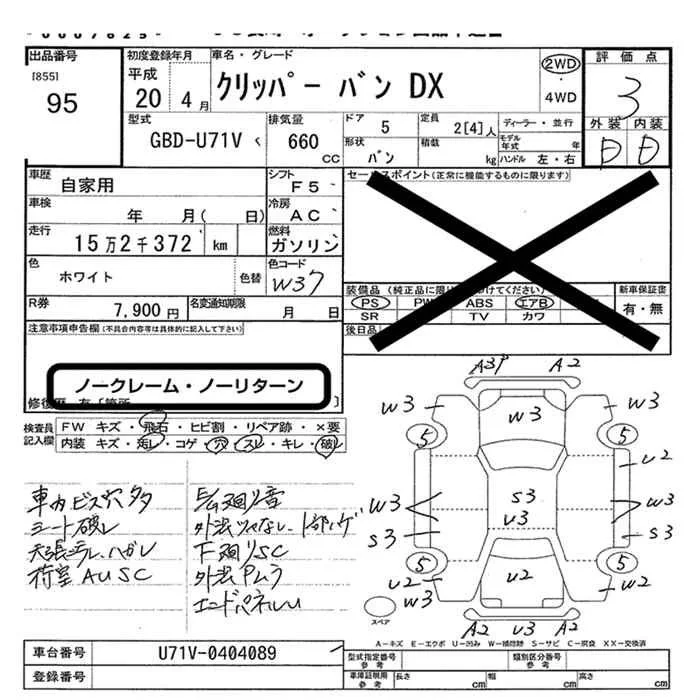 出品番号
[855]
95
初度登録年月
平成
20 4月
車名・グレード
クリッパー バン DX
2WD
・
4WD
評価点
3
外装 内装
D D
型式
GBD-U71V
排気量
660
CC
ドア 5
定員 2[4]人
ディーラー・並行
形状
バン
積載
kg
モデル年式 年
ハンドル 左・右
車歴
自家用
シフト
F5
車検
年 月( 日)
冷房
AC
走行
15万2千372 km
燃料
ガソリン
色
ホワイト
色替
色コード
W37
R券
7,900円
名変通知期限
月 日
セールスポイント(正常に機能するものに限ります)
新車保証書
有・無
PS
ABS
エアB
SR
TV
カワ
後日品
注意事項申告欄(不具合内容等は具体的に記入して下さい)
ノークレーム・ノーリターン
検査員
記入欄
FW キズ・飛石・ヒビ割・リペア跡・×要
内装 キズ・汚レ・コゲ・穴・スレ・キレ・破レ
車内ビス穴多
シート破レ
荷室AUSC
下廻りSC
A2
W3
W3
W3
5
5
U2
W3
S3
U3
W3
S3
S3
5
5
U2
W3
U2
U2
W2
A2
U3
A2
スペア
A−キズ E−エクボ U−凹み W−補修跡 S−サビ C−腐食 XX−交換済
車台番号
U71V-0404089
登録番号
型式指定番号
参考
類別区分番号
参考
車庫証明用
参考
長さ cm
幅 cm
高さ cm